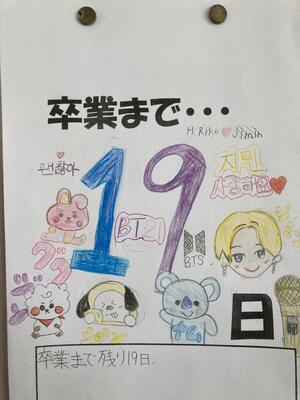 卒業まで・・・
H. Riko ♡ Jimin
괜찮아
19
지민
사랑해요
BT21
BTS
グク
ジン
ナム
日
卒業まで残り19日.